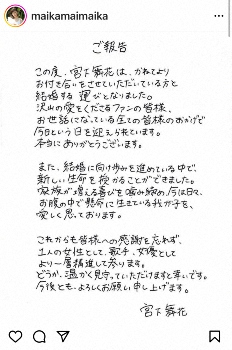 maikamaimaika
ご報告
この度、宮下舞花は、かねてより
お付き合いをさせていただいている方と
結婚する運びとなりました。
沢山の愛をくださるファンの皆様、
お世話になっている全ての皆様のおかげで
今日という日を迎えられています。
本当にありがとうございます。
また、結婚に向け歩みを進めている中で、
新しい生命を授かることができました。
家族が増える喜びを噛み締め、今は日々、
お腹の中で懸命に生きている我が子を、
愛しく思っております。
これからも皆様への感謝を忘れず、
1人の女性として、歌手、女優として
より一層精進して参ります。
どうか、温かく見守っていただけますと幸いです。
今後とも、よろしくお願い申し上げます。
宮下舞花